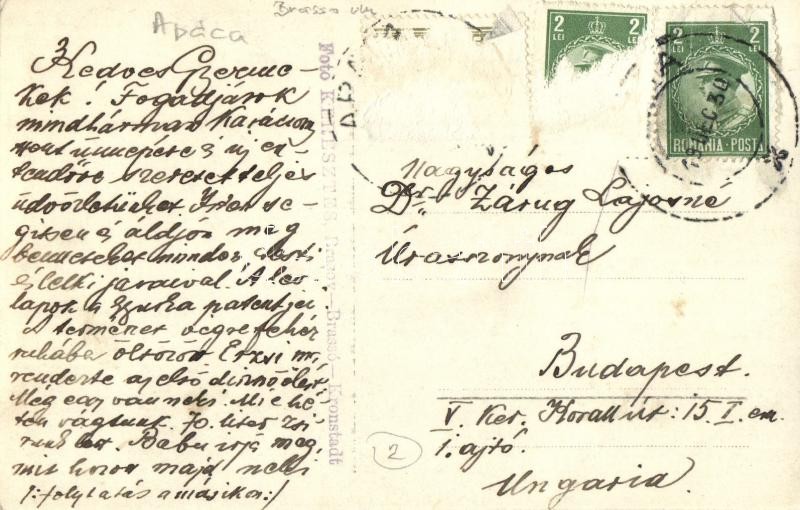 Apáca
Brassó vm
Kedves Gyerme-
kek! Fogadjátok
mindhárman karácson
szent ünnepére és új esz-
tendőre szeretetteljes
üdvözletünket. Isten se-
gítsen és áldjon meg
benneteket minden testi
és lelki javaival. A lev-
lapok a Szurka patentjei.
A természet végre fehér
ruhába öltözött. Erzsi
rendezte az első disznóölést
Még egy van neki. Mi e hé-
ten vágtunk. 70 liter zsí-
runk lett. Babu írja meg,
mit hozon majd neki
/:folytatás a másikon:/
Fotó KERESZTES Brașov—Brassó—Kronstadt
2 LEI 2 LEI
2 LEI 2 LEI
ROMANIA-POSTA
DEC 30
Nagyságos
Dr. Zárug Lajosné
Úrasszonynak
Budapest.
V. Ker. Korall út: 15 I. em.
1. ajtó.
Ungaria.
2